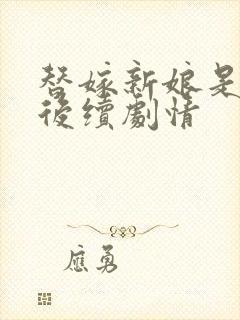 替嫁新娘是
後續劇情
應勇